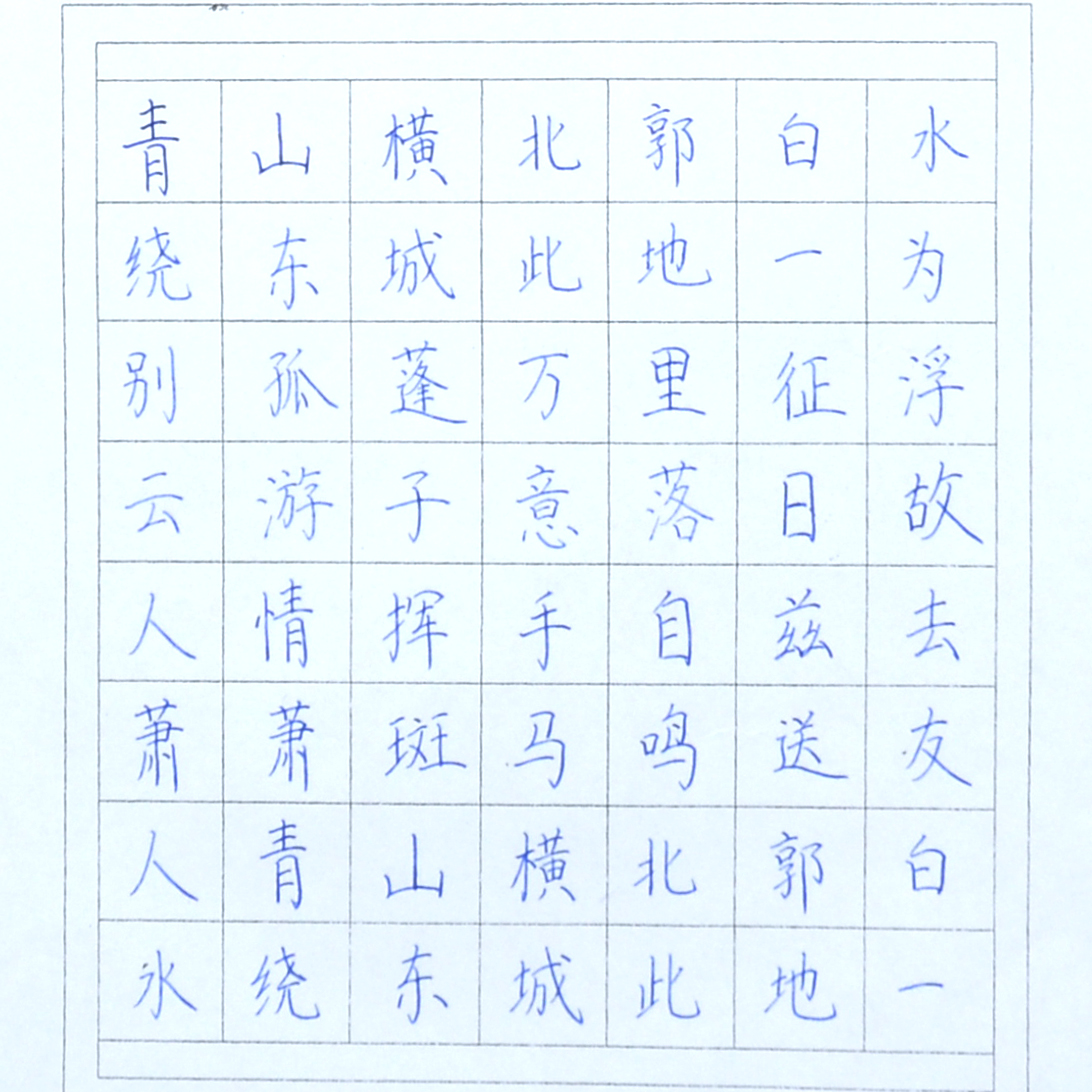 青山横北郭白水
绕东城此地一为
别孤蓬万里征浮
云游子意落日故
人情挥手自兹去
萧萧斑马鸣送友
人青山横北郭白
水绕东城此地一